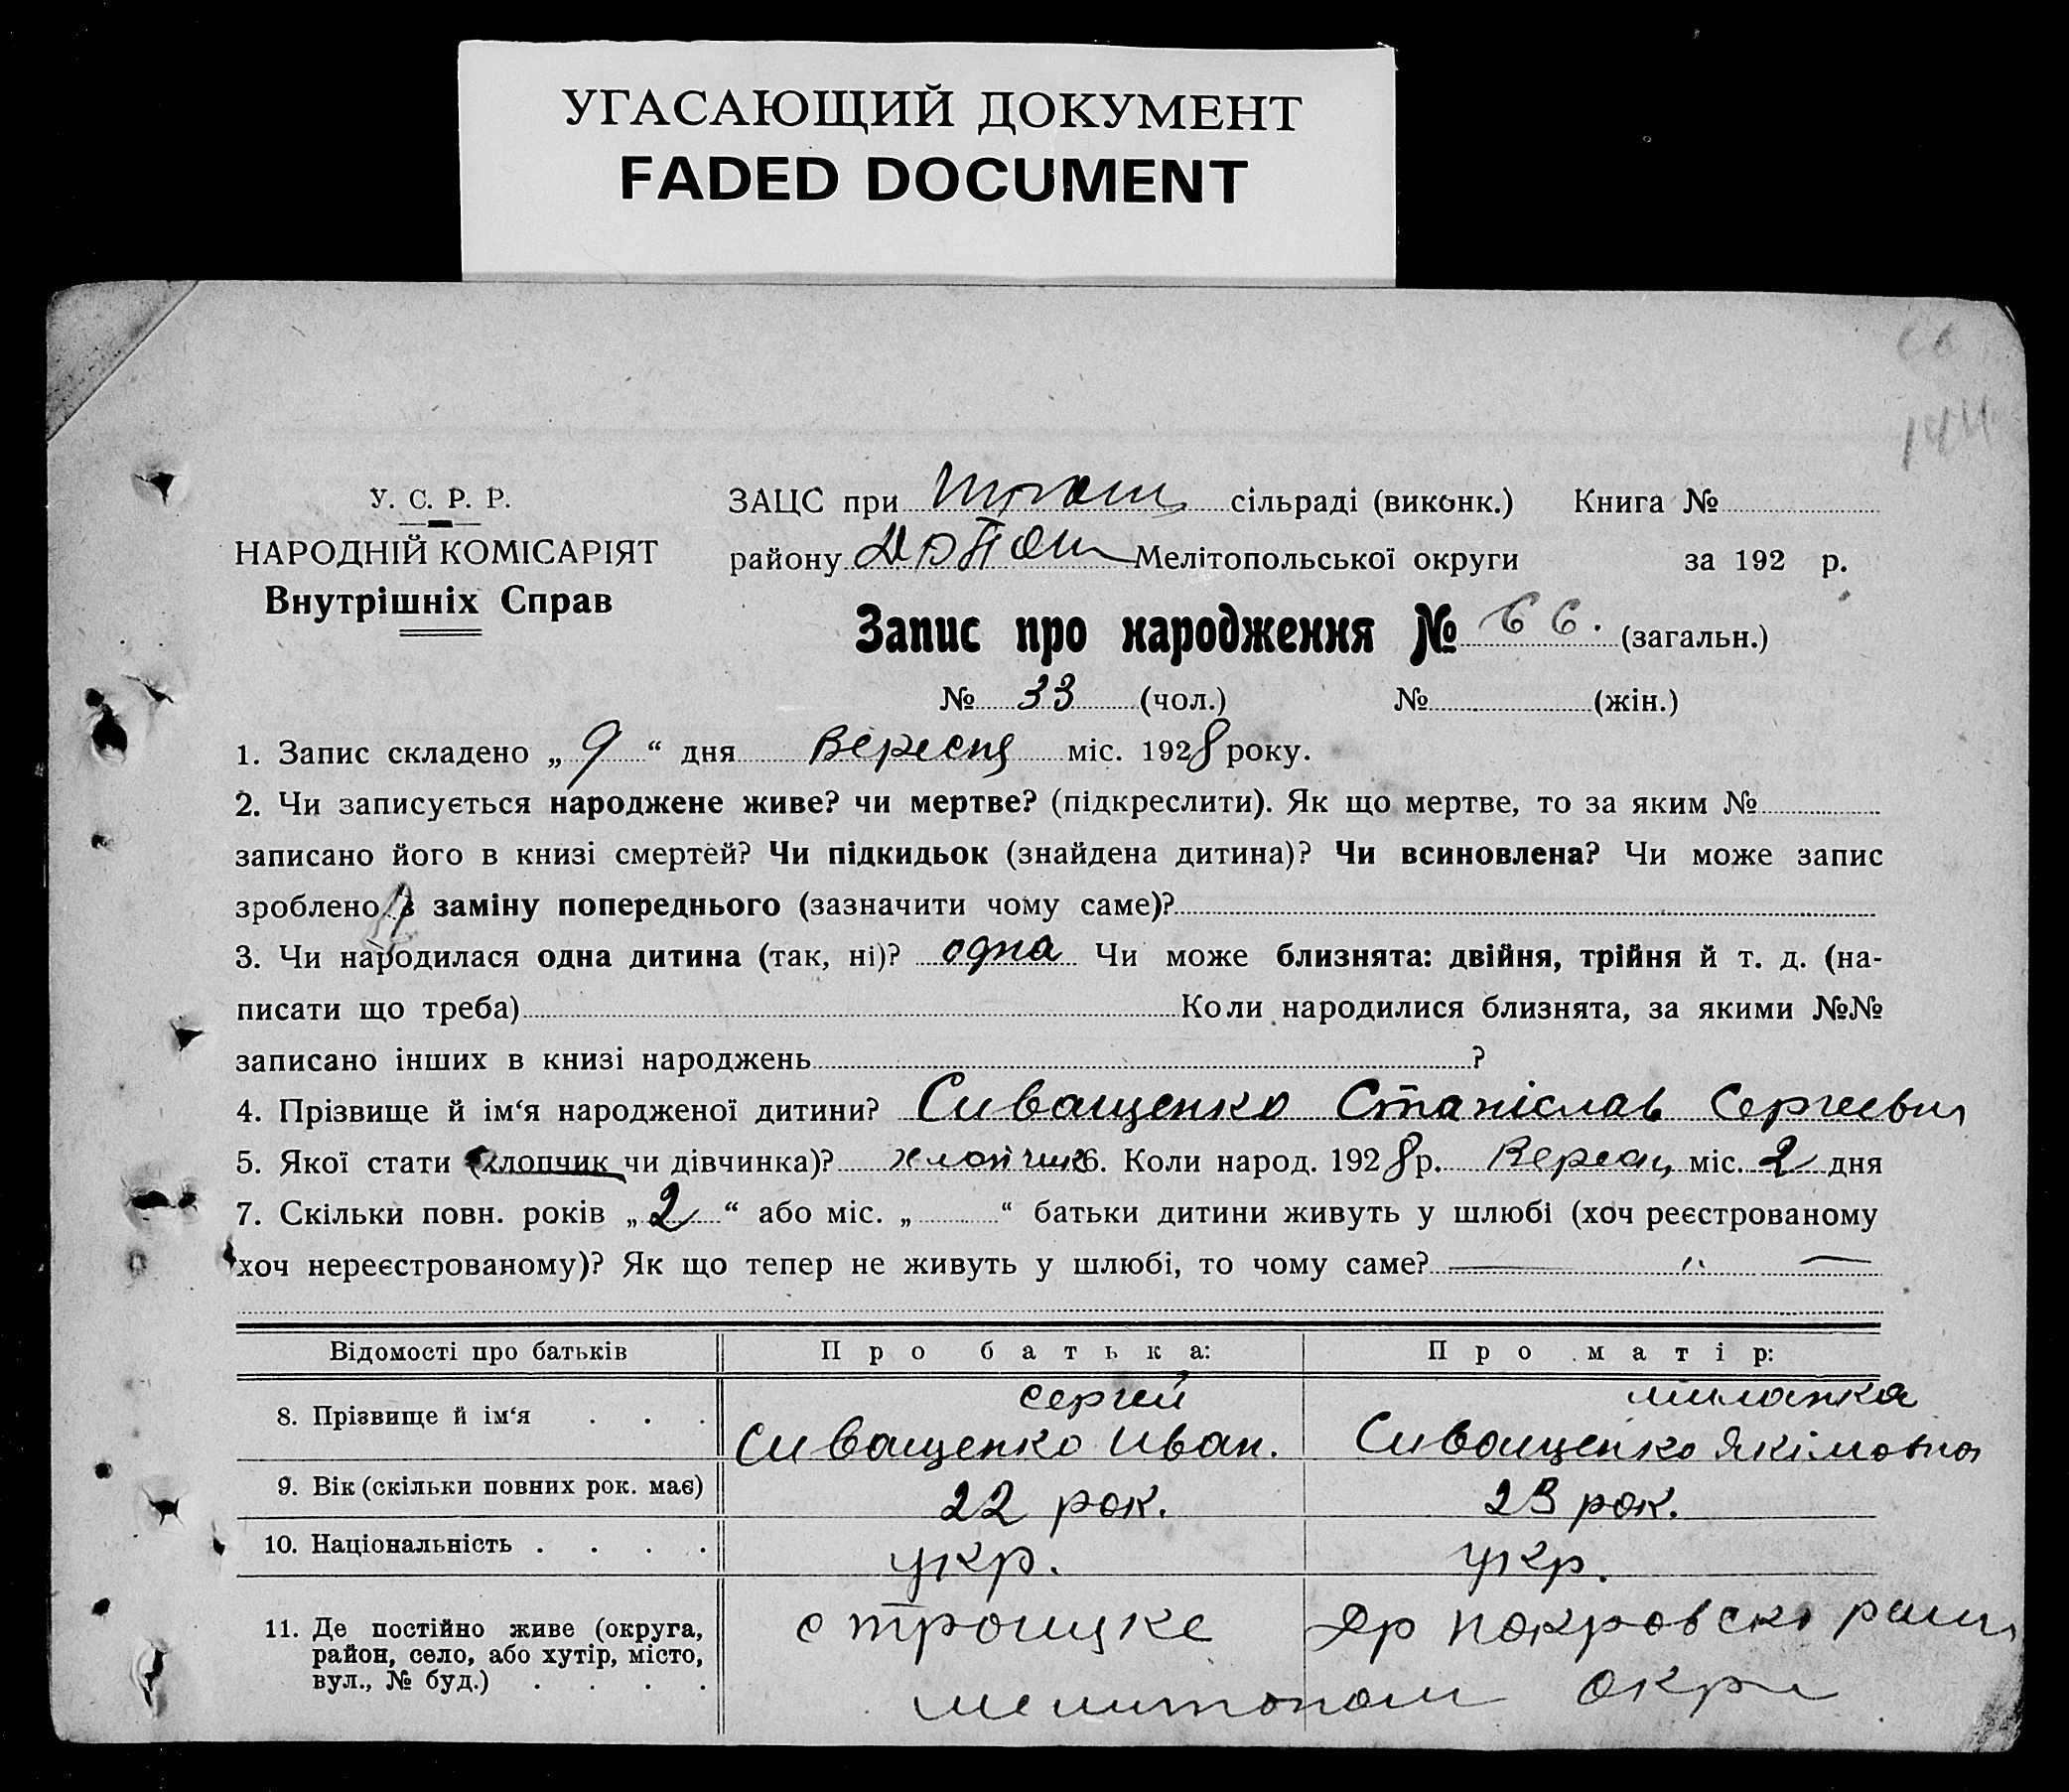 УГАСАЮЩИЙ ДОКУМЕНТ
FADED DOCUMENT
144
У. С. Р. Р.
НАРОДНІЙ КОМІСАРІЯТ
Внутрішніх Справ
ЗАЦС при сільраді (виконк.) Книга №
району Мелітопольської округи за 192 р.
Запис про народження № 66. (загальн.)
№ 33 (чол.) № (жін.)
1. Запис складено „ 9 “ дня Вересня міс. 1928 року.
2. Чи записується народжене живе? чи мертве? (підкреслити). Як що мертве, то за яким №
записано його в книзі смертей? Чи підкидьок (знайдена дитина)? Чи всиновлена? Чи може запис
зроблено в заміну попереднього (зазначити чому саме)?
3. Чи народилася одна дитина (так, ні)? одна Чи може близнята: двійня, трійня й т. д. (на-
писати що треба) Коли народилися близнята, за якими №№
записано інших в книзі народжень ?
4. Прізвище й ім‘я народженої дитини? Сиващенко Станіслав Сергеевич
5. Якої стати (хлопчик чи дівчинка)? хлопчик 6. Коли народ. 1928 р. Вересн міс. 2 дня
7. Скільки повн. років „ 2 “ або міс. „ “ батьки дитини живуть у шлюбі (хоч реєстрованому
хоч нереєстрованому)? Як що тепер не живуть у шлюбі, то чому саме? — „ —
Відомості про батьків Про батька: Про матір:
8. Прізвище й ім‘я . . . сергий Сиващенко Иван. миланка Сиващенко Якімовна
9. Вік (скільки повних рок. має) 22 рок. 23 рок.
10. Національність . . . . укр. укр.
11. Де постійно живе (округа, район, село, або хутір, місто, вул., № буд.) . . . . с троицке покровск
окр